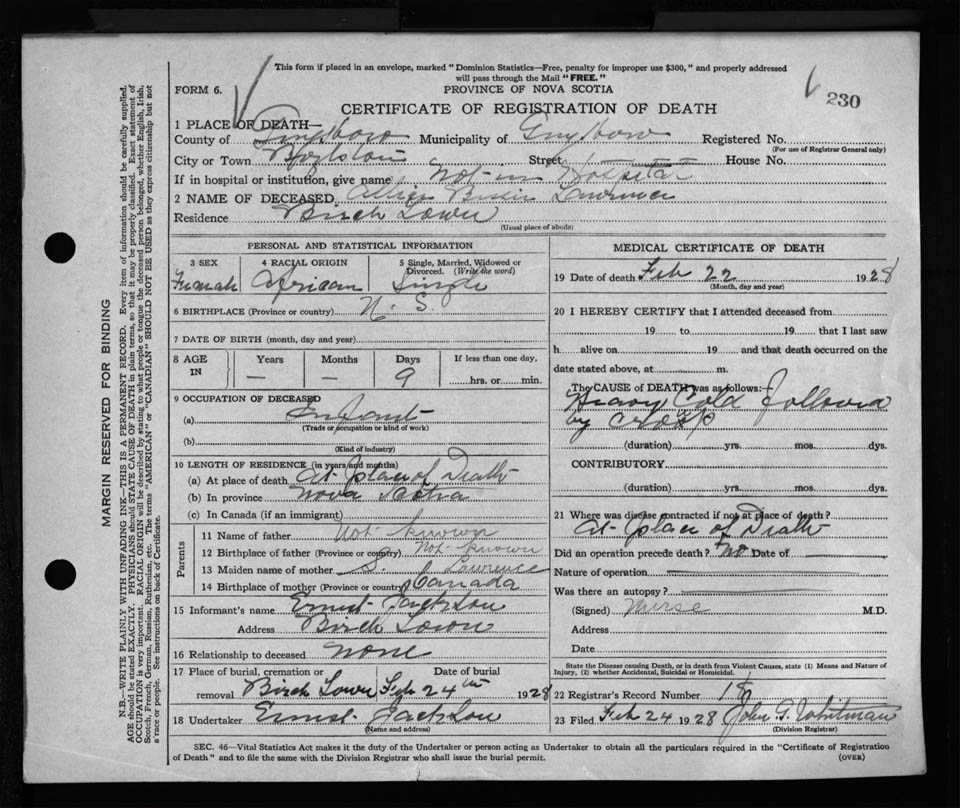 This form if placed in an envelope, marked "Dominion Statistics—Free, penalty for improper use $300," and properly addressed
will pass through the Mail "FREE."
FORM 6.
PROVINCE OF NOVA SCOTIA
230
CERTIFICATE OF REGISTRATION OF DEATH
1 PLACE OF DEATH—
County of Guysboro Municipality of Guysboro Registered No.
(For use of Registrar General only)
City or Town Boylston Street House No.
If in hospital or institution, give name Not in Hospital
2 NAME OF DECEASED Lawrence
Residence Birch Town
(Usual place of abode)
PERSONAL AND STATISTICAL INFORMATION
3 SEX 4 RACIAL ORIGIN 5 Single, Married, Widowed or
Divorced. (Write the word)
Female African Single
6 BIRTHPLACE (Province or country) N. S.
7 DATE OF BIRTH (month, day and year)
8 AGE Years Months Days If less than one day,
IN — — 9 hrs. or min.
9 OCCUPATION OF DECEASED
(a) Infant
(Trade or occupation or kind of work)
(b)
(Kind of industry)
10 LENGTH OF RESIDENCE (in years and months)
(a) At place of death At place of Death
(b) In province Nova Scotia
(c) In Canada (if an immigrant)
Parents
11 Name of father Not Known
12 Birthplace of father (Province or country) Not Known
13 Maiden name of mother S. Lawrence
14 Birthplace of mother (Province or country) Canada
15 Informant's name Ernest Jackson
Address Birch Town
16 Relationship to deceased none
17 Place of burial, cremation or Date of burial
removal Birch Town Feb 24th 1928
18 Undertaker Ernest Jackson
(Name and address)
MEDICAL CERTIFICATE OF DEATH
19 Date of death Feb 22 1928
(Month, day and year)
20 I HEREBY CERTIFY that I attended deceased from
19 to 19 that I last saw
h alive on 19 and that death occurred on the
date stated above, at m.
The CAUSE of DEATH was as follows:
Heavy Cold followed
by croup
(duration) yrs. mos. dys.
CONTRIBUTORY
(duration) yrs. mos. dys.
21 Where was disease contracted if not at place of death?
At place of Death
Did an operation precede death? No Date of
Nature of operation
Was there an autopsy?
(Signed) Nurse M.D.
Address
Date
State the Disease causing Death, or in death from Violent Causes, state (1) Means and Nature of
Injury, (2) whether Accidental, Suicidal or Homicidal.
22 Registrar's Record Number
23 Filed Feb 24 1928 John G. Whitman
(Division Registrar)
SEC. 46—Vital Statistics Act makes it the duty of the Undertaker or person acting as Undertaker to obtain all the particulars required in the "Certificate of Registration
of Death" and to file the same with the Division Registrar who shall issue the burial permit.
(OVER)
MARGIN RESERVED FOR BINDING
N.B.—WRITE PLAINLY, WITH UNFADING INK—THIS IS A PERMANENT RECORD. Every item of information should be carefully supplied.
AGE should be stated EXACTLY. PHYSICIANS should STATE CAUSE OF DEATH in plain terms, so that it may be properly classified. Exact statement of
OCCUPATION is very important. RACIAL ORIGIN will be described by stating to what people or tongue the deceased person belonged, whether English, Irish,
Scotch, French, German, Russian, Ruthenian, etc. The terms "AMERICAN" or "CANADIAN" SHOULD NOT BE USED as they express citizenship but not
a race or people. See instructions on back of Certificate.